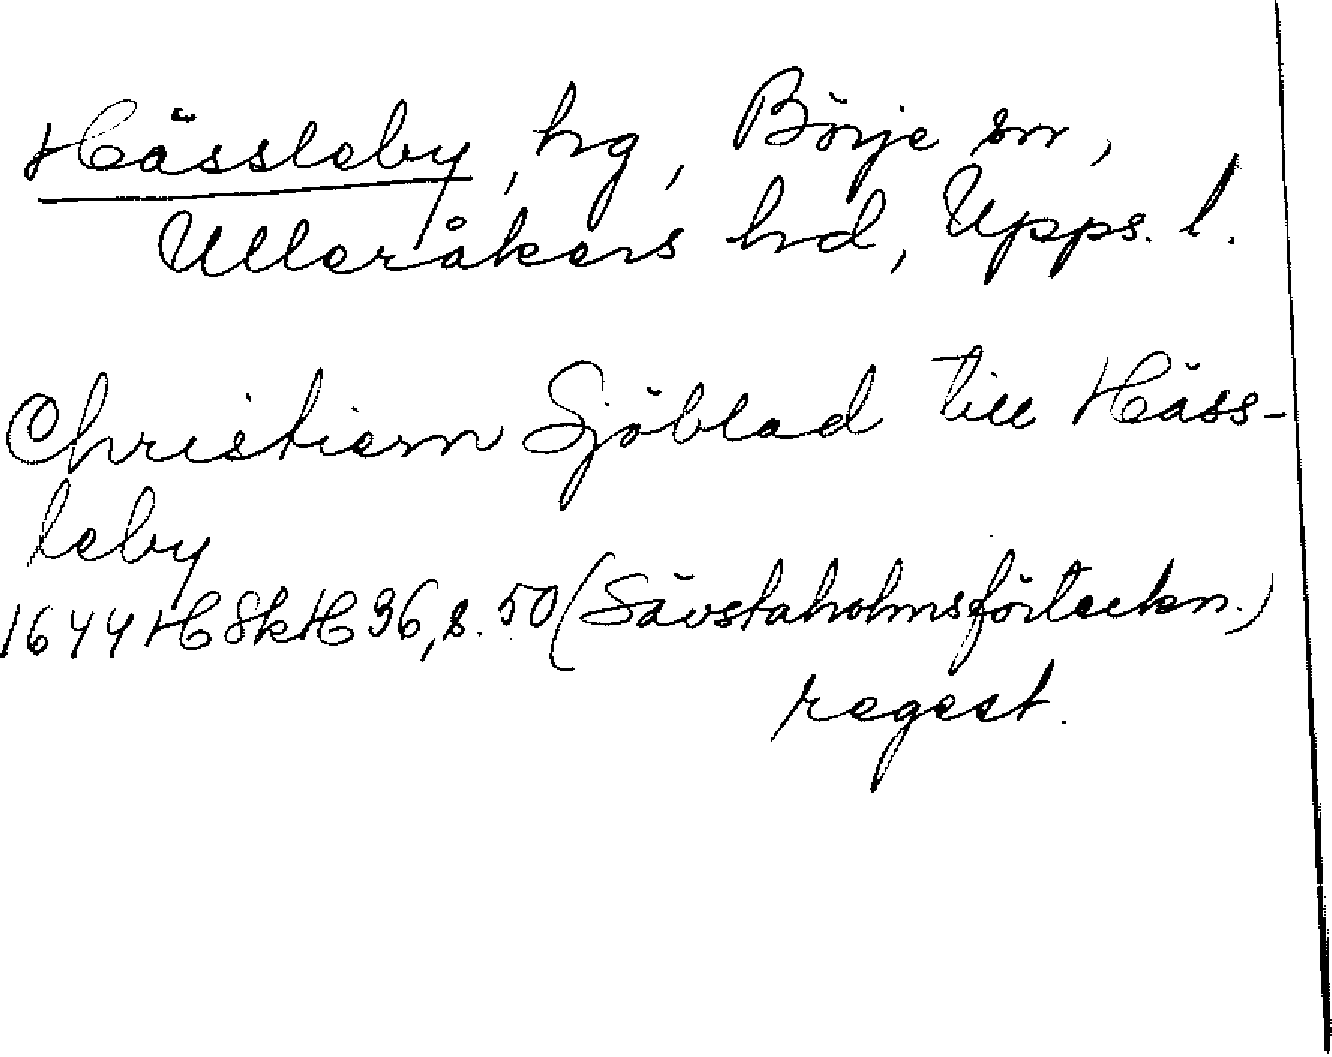 Hässleby, hg, Börje sn,
Ulleråkers hd, Upps. l.
Christiern Sjöblad till Häss-
leby
1644 HSkH 36, s. 50 (Sävstaholmsförteckn.)
regest.